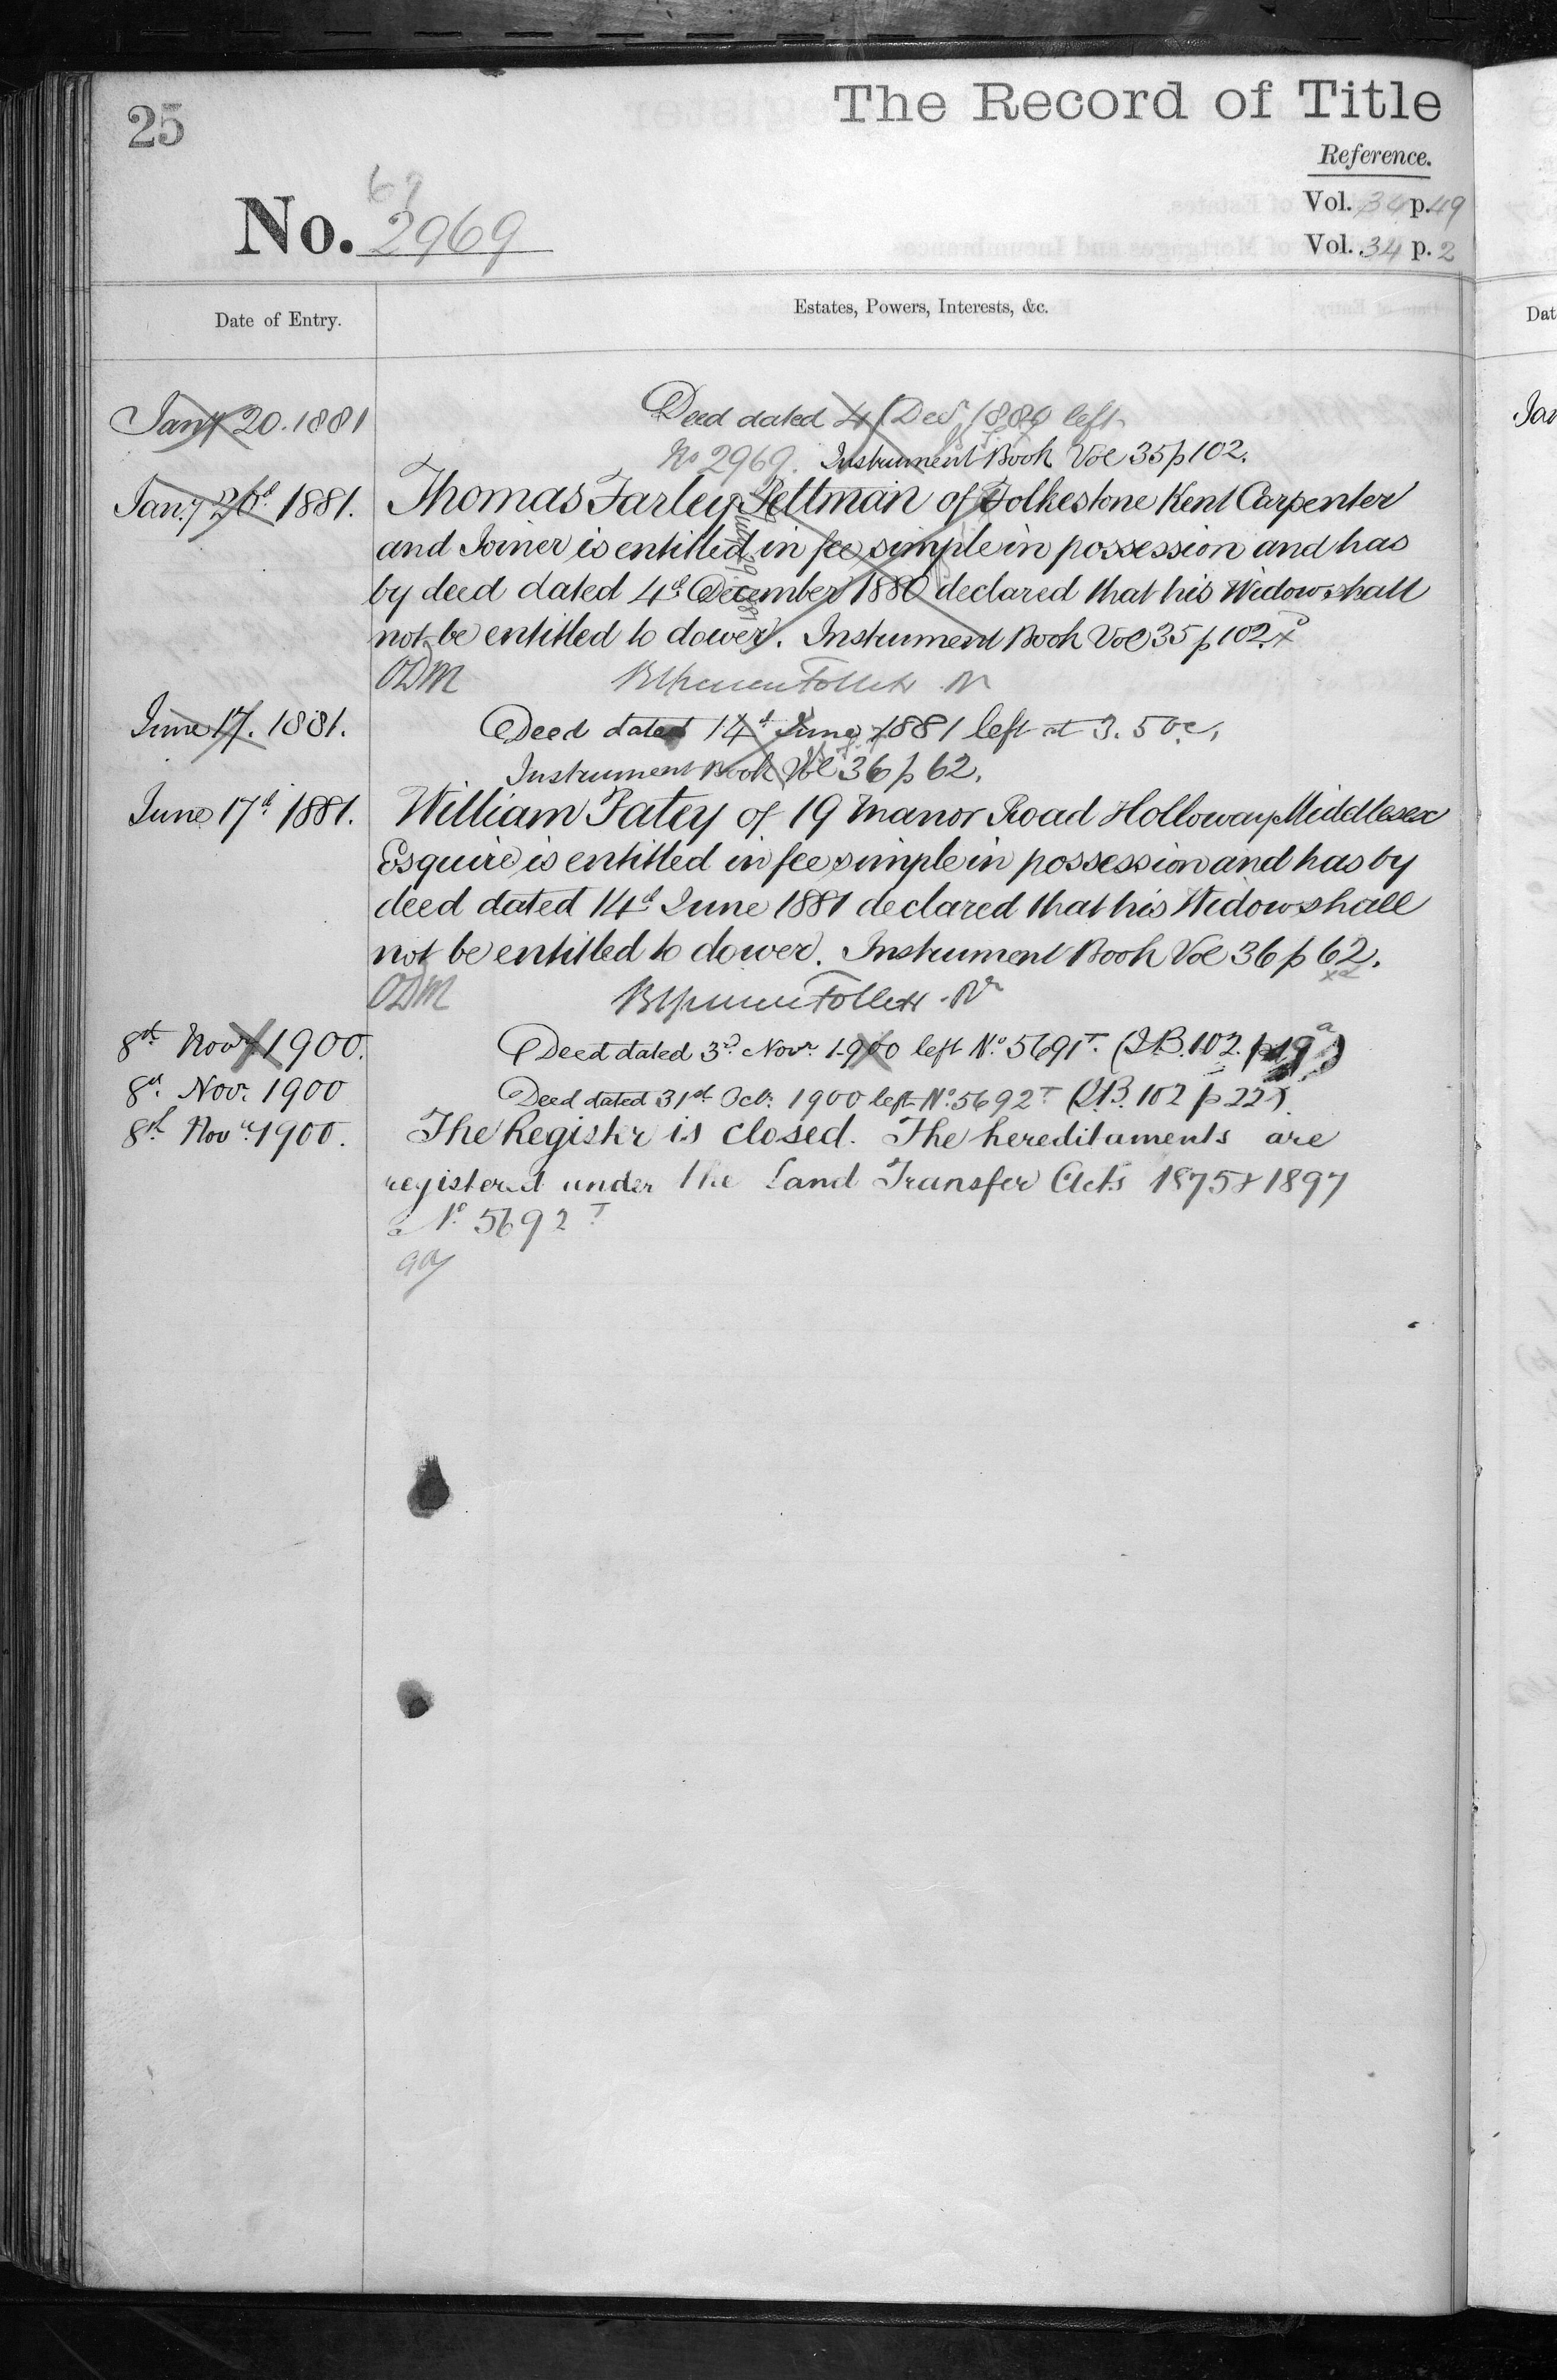 25
The Record of Title
Reference.
Vol. 34 p. 49
Vol. 34 p. 2
67
No. 2969
Date of Entry.
Estates, Powers, Interests, &c.
Jany 20. 1881
Deed dated 4 Decr 1880 left
No 2969. Instrument Book Vol 35 p 102.
Jany 20th 1881.
Thomas Farley Pettman of Folkestone Kent Carpenter
and Joiner is entitled in fee simple in possession and has
by deed dated 4th December 1880 declared that his Widow shall
not be entitled to dower. Instrument Book Vol 35 p 102.
ODM
Follett
June 17. 1881.
Deed dated 14th June 1881 left at 3.50
Instrument Book Vol 36 p 62.
June 17th 1881.
William Patey of 19 Manor Road Holloway Middlesex
Esquire is entitled in fee simple in possession and has by
deed dated 14th June 1881 declared that his Widow shall
not be entitled to dower. Instrument Book Vol 36 p 62.
ODM
Follett
8th Novr 1900.
Deed dated 3rd Novr 1900 left No 5691T. (I.B. 102. p 19a)
8th Nov. 1900
Deed dated 31st Octr 1900 left No 5692T (I.B. 102 p 22).
8th Novr 1900.
The Register is closed. The hereditaments are
registered under the Land Transfer Acts 1875 & 1897
No 5692T